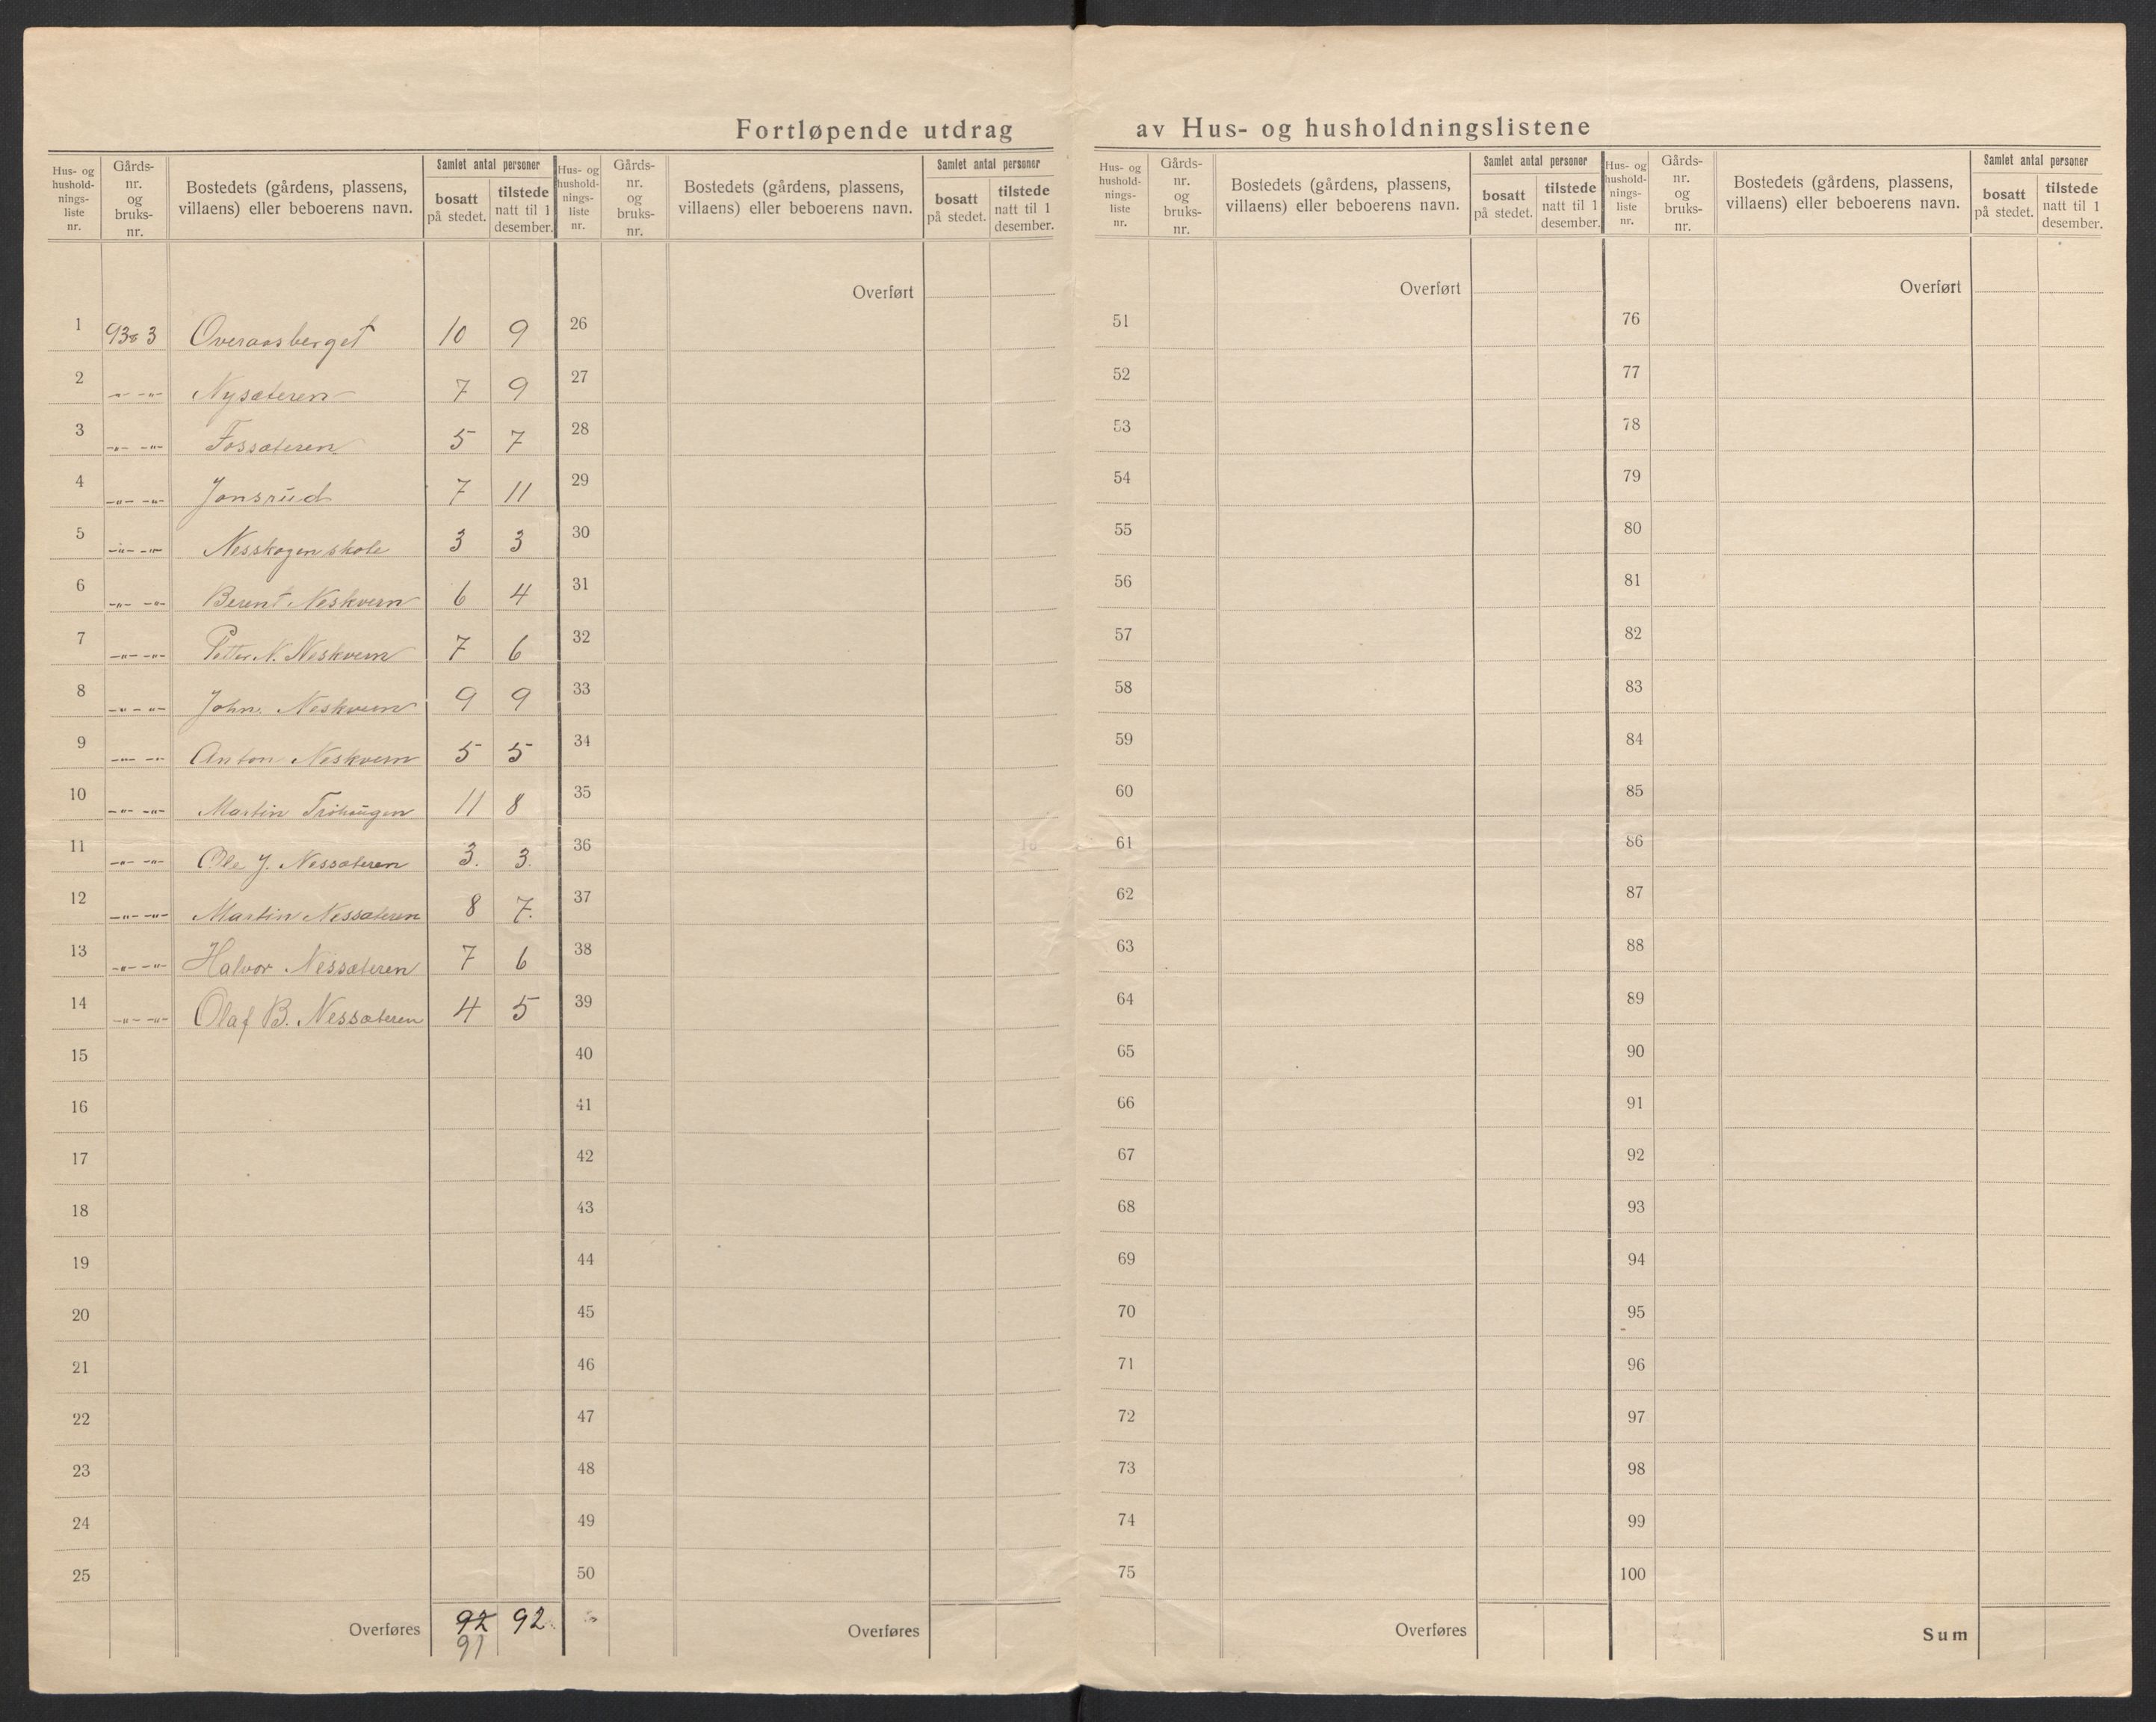 Fortløpende utdrag av Hus- og husholdningslistene
Hus- og hushold-nings-liste nr. Gårds-nr. og bruks-nr. Bostedets (gårdens, plassens, villaens) eller beboerens navn. Samlet antal personer bosatt på stedet. tilstede natt til 1 desember.
1 93 3 Overaasberget 10 9
2 -"- -"- Nysæteren 7 9
3 -"- -"- Fossæteren 5 7
4 -"- -"- Jonsrud 7 11
5 -"- -"- Nesskogen skole 3 3
6 -"- -"- Berent Neskvern 6 4
7 -"- -"- Petter N. Neskvern 7 6
8 -"- -"- John Neskvern 9 9
9 -"- -"- Anton Neskvern 5 5
10 -"- -"- Martin 11 8
11 -"- -"- Ole J. Nessæteren 3. 3.
12 -"- -"- Martin Nessæteren 8 7.
13 -"- -"- Halvor Nessæteren 7 6
14 -"- -"- Olaf B. Nessæteren 4 5
15
16
17
18
19
20
21
22
23
24
25
Overføres 92 92.
91
Hus- og hushold-nings-liste nr. Gårds-nr. og bruks-nr. Bostedets (gårdens, plassens, villaens) eller beboerens navn. Samlet antal personer bosatt på stedet. tilstede natt til 1 desember.
Overført
26
27
28
29
30
31
32
33
34
35
36
37
38
39
40
41
42
43
44
45
46
47
48
49
50
Overføres
Hus- og hushold-nings-liste nr. Gårds-nr. og bruks-nr. Bostedets (gårdens, plassens, villaens) eller beboerens navn. Samlet antal personer bosatt på stedet. tilstede natt til 1 desember.
Overført
51
52
53
54
55
56
57
58
59
60
61
62
63
64
65
66
67
68
69
70
71
72
73
74
75
Overføres
Hus- og hushold-nings-liste nr. Gårds-nr. og bruks-nr. Bostedets (gårdens, plassens, villaens) eller beboerens navn. Samlet antal personer bosatt på stedet. tilstede natt til 1 desember.
Overført
76
77
78
79
80
81
82
83
84
85
86
87
88
89
90
91
92
93
94
95
96
97
98
99
100
Sum